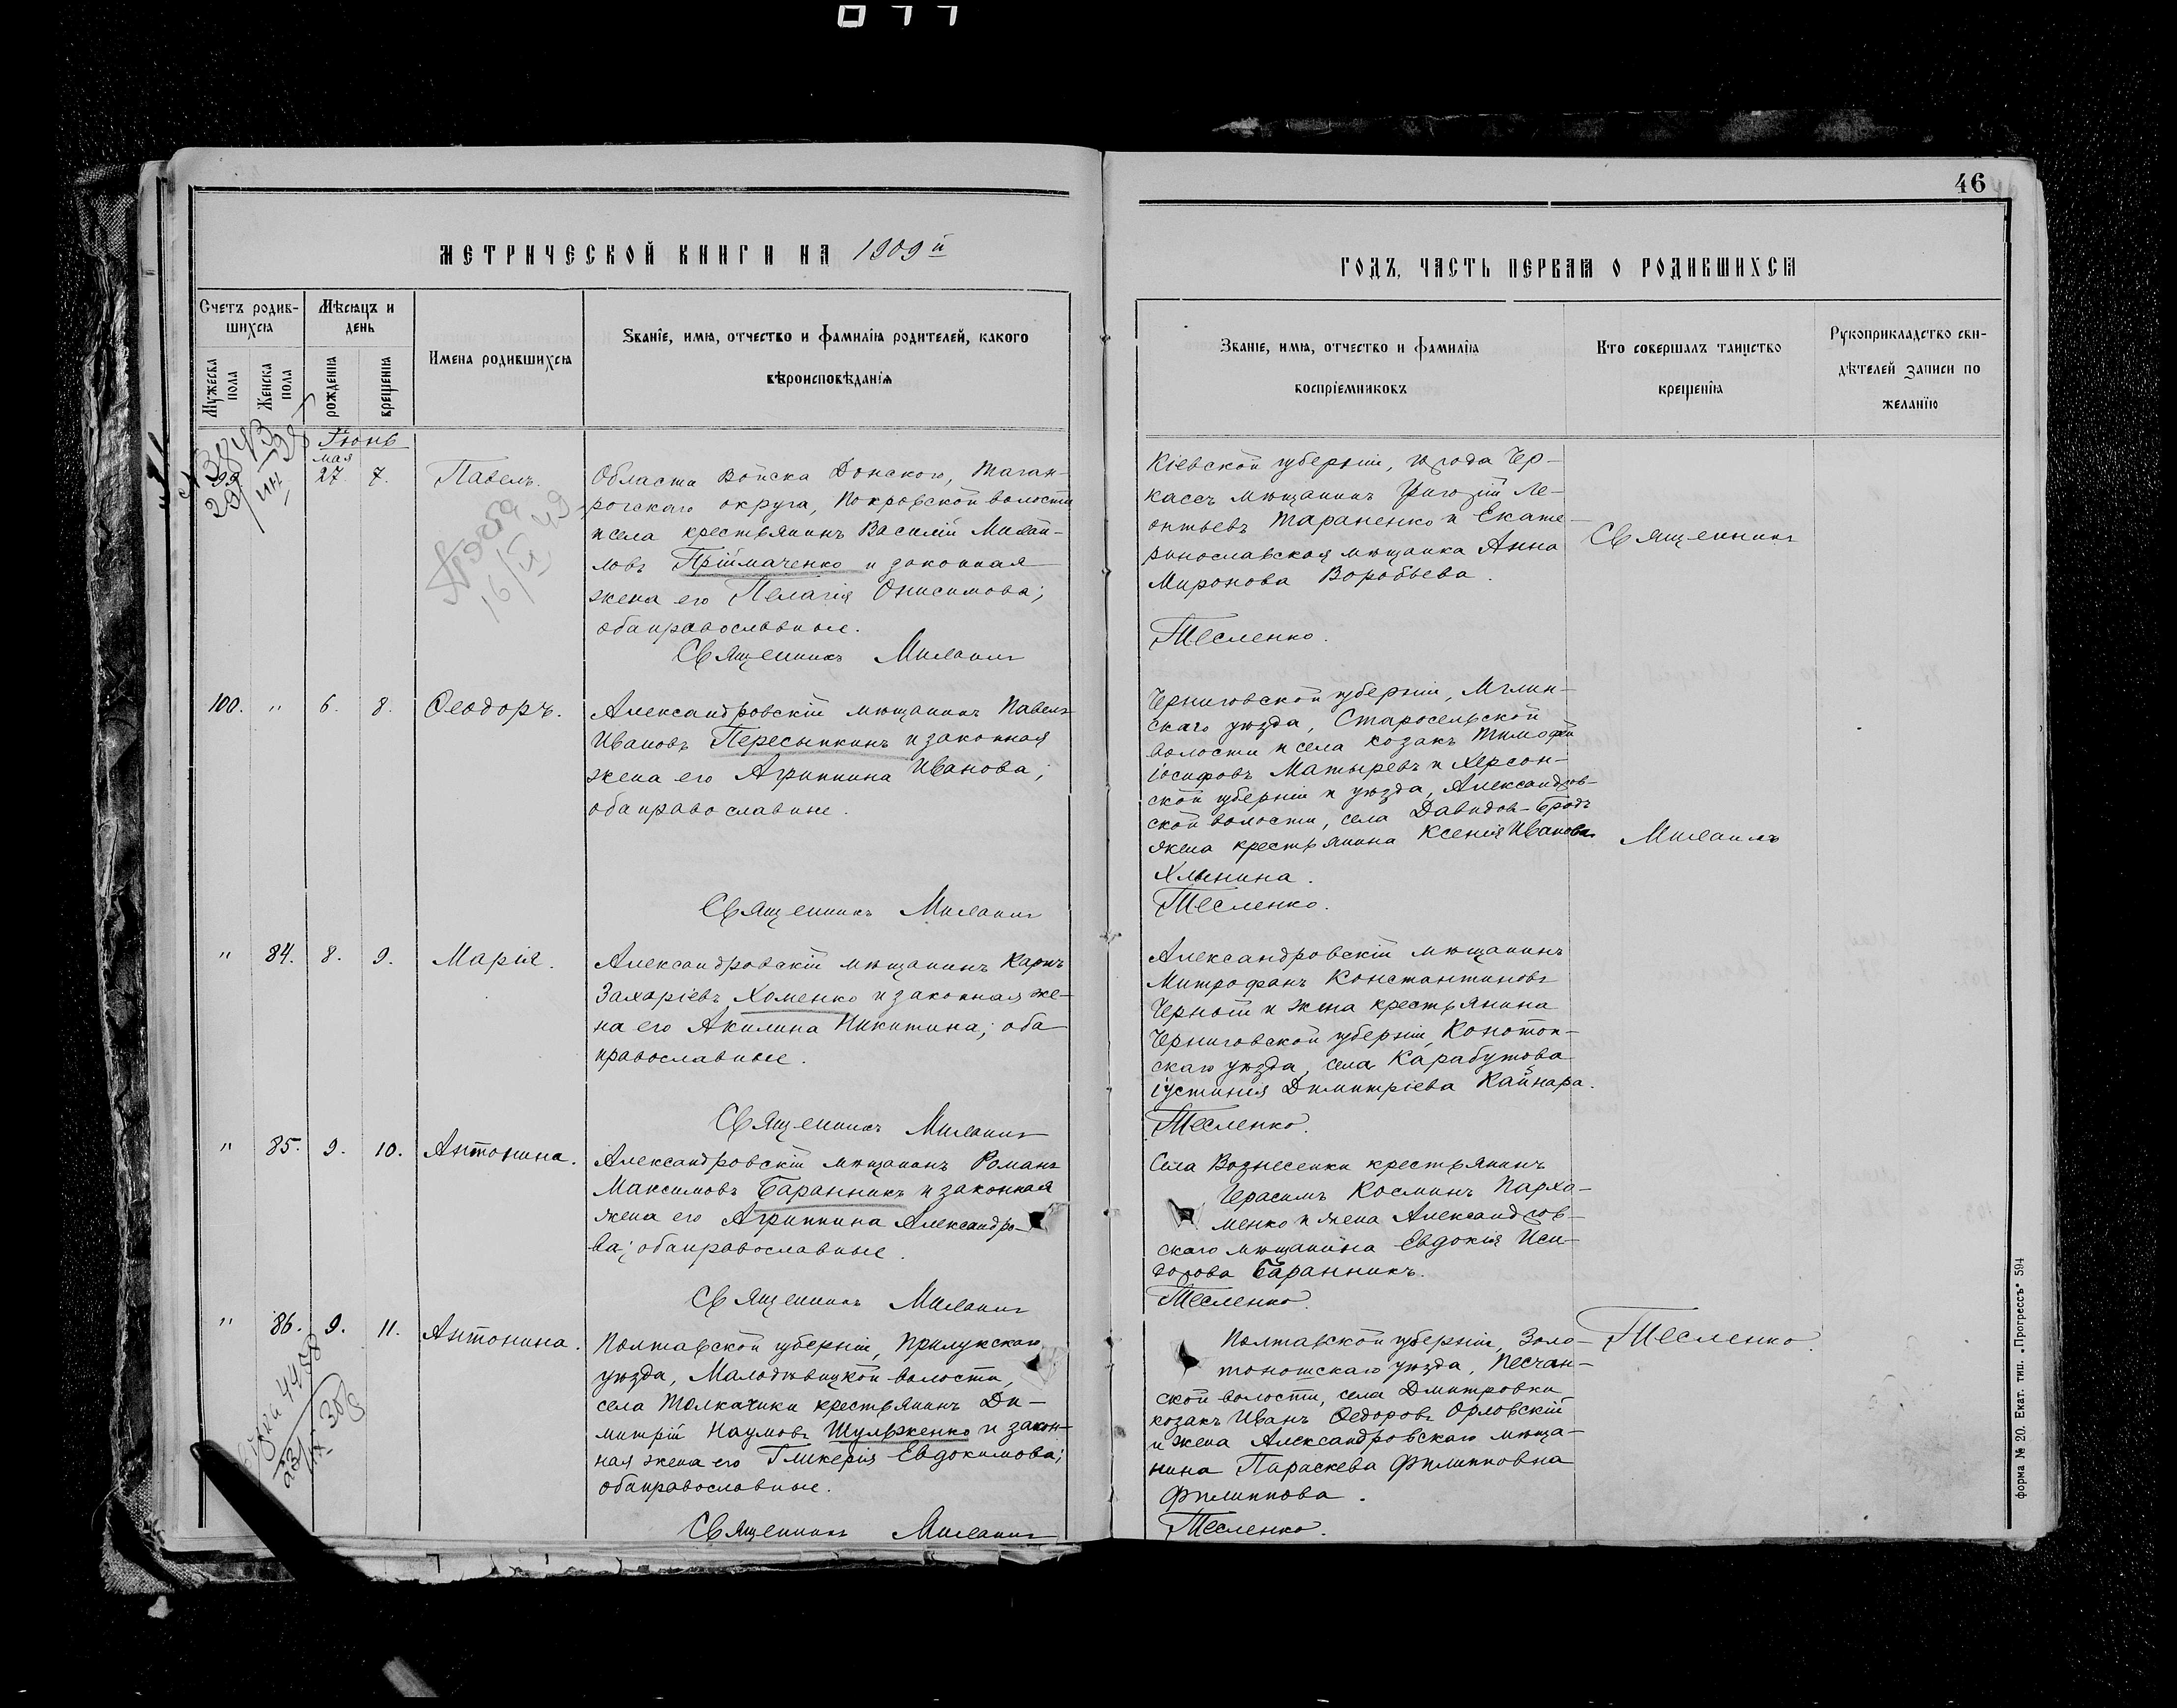 46
МЕТРИЧЕСКОЙ КНИГИ НА 1909й
Счетъ родив-
шихся
Мѣсяцъ и
день
Мужеска
пола
Женска
пола
рожденія
крещенія
Имена родившихся
Званіе, имя, отчество и фамилія родителей, какого
вѣроисповѣданія
Іюнь
мая
27. 7. Павелъ.
Области Войска Донского, Таган-
рогскаго округа, Покровской волости
и села крестьянинъ Василій Михай-
ловъ Пріймаченко и законная
жена его Пелагія Онисимова;
оба православные.
Священникъ Михаилъ
100. " 6. 8. Ѳеодоръ.
Александровскій мѣщанинъ Павелъ
Ивановъ Пересыпкинъ и законная
жена его Агриппина Иванова;
оба православные.
Священникъ Михаилъ
" 84. 8. 9. Марія.
Александровскій мѣщанинъ Карпъ
Захаріевъ Хоменко и законная же-
на его Акилина Никитина; оба
православные.
Священникъ Михаилъ
" 85. 9. 10. Антонина.
Александровскій мѣщанинъ Романъ
Максимовъ Баранникъ и законная
жена его Агриппина Александро-
ва; оба православные.
Священникъ Михаилъ
" 86. 9. 11. Антонина.
Полтавской губерніи, Прилукскаго
уѣзда, Малодѣвицкой волости,
села Толкачики крестьянинъ Ди-
митрій Наумовъ Шульженко и закон-
ная жена его Гликерія Евдокимова;
оба православные.
Священникъ Михаилъ
ГОДЪ, ЧАСТЬ ПЕРВАЯ О РОДИВШИХСЯ
Званіе, имя, отчество и фамилія
воспріемниковъ
Кто совершалъ таинство
крещенія
Рукоприкладство сви-
дѣтелей записи по
желанію
Кіевской губерніи, города Чер-
кассъ мѣщанинъ Григорій Ле-
онтьевъ Тараненко и Екате-
ринославская мѣщанка Анна
Миронова Воробьева.
Тесленко.
Черниговской губерніи, Мглин-
скаго уѣзда, Старосельской
волости и села козакъ Тимофей
Іосифовъ Матыревъ и Херсон-
ской губерніи и уѣзда, Александров-
ской волости, села Давидов-Бродъ
жена крестьянина Ксенія Иванова
Хлынина.
Тесленко.
Александровскій мѣщанинъ
Митрофанъ Константиновъ
Черный и жена крестьянина
Черниговской губерніи, Конотоп-
скаго уѣзда, села Карабутова
Іустинія Димитріева Кайнара.
Тесленко.
Села Вознесенки крестьянинъ
Герасимъ Косминъ Пархо-
менко и жена Александров-
скаго мѣщанина Евдокія Иси-
дорова Баранникъ.
Тесленко.
Полтавской губерніи, Золо-
тоношскаго уѣзда, Песчан-
ской волости, села Дмитровки
козакъ Иванъ Ѳедоровъ Орловскій
и жена Александровскаго мѣща-
нина Параскева Филипповна
Филиппова.
Тесленко.
Священникъ
Михаилъ
Тесленко.
форма № 20. Екат. тип. „Прогрессъ" 594